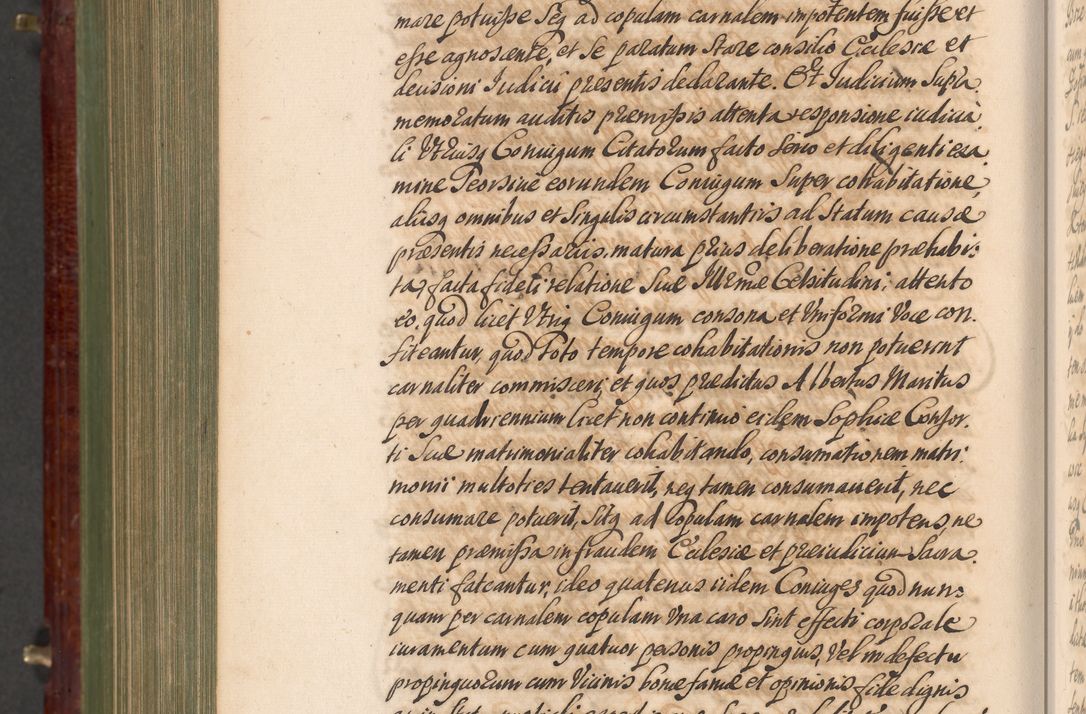 mare potuisse Seq ad copulam carnalem impotentem fuisse et
esse agnoscente, et se paratum stare consilio Ecclesiæ et
decisioni Iudicii præsentis declarante. Et Iudicium Supra
memoratum auditis præmissis attenta responsione iudicia
li Utriusq Coniugum Citatorum facto serio et diligenti exa
mine Seorsive eorundem Coniugum Super cohabitatione,
aliisq omnibus et Singulis circumstantiis ad Statum causæ
præsentis necessariis, matura prius deliberatione præhabi:
ta, facta fideli relatione Suæ Illrmæ Celsitudini; attento
eo, quod licet Utriq Coniugum consona et Uniformi Voce con.
fiteantur, quod Toto tempore cohabitationis non potuerint
carnaliter commisceri, et quos prædictus Albertus Maritus
per quadriennium licet non continuo eidem Sophiæ Consor.
ti Suæ matrimonialiter cohabitando, consumationem matri:
monii multoties tentaverit, neq tamen consumaverit, nec
consumare potuerit, Sitq ad Copulam carnalem impotens, ne
tamen præmissa in fraudem Ecclesiæ et præiudicium Sacra.
menti fateantur, ideo quatenus iidem Coniuges quod nun:
quam per carnalem copulam Una caro Sint effecti corporale
iuramentum cum quatuor personis propinquis, Vel in defectu
propinquorum cum Vicinis bonæ famæ et opinionis fide dignis